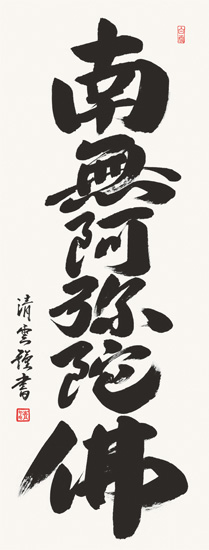 南無阿弥陀佛
清雲韓書